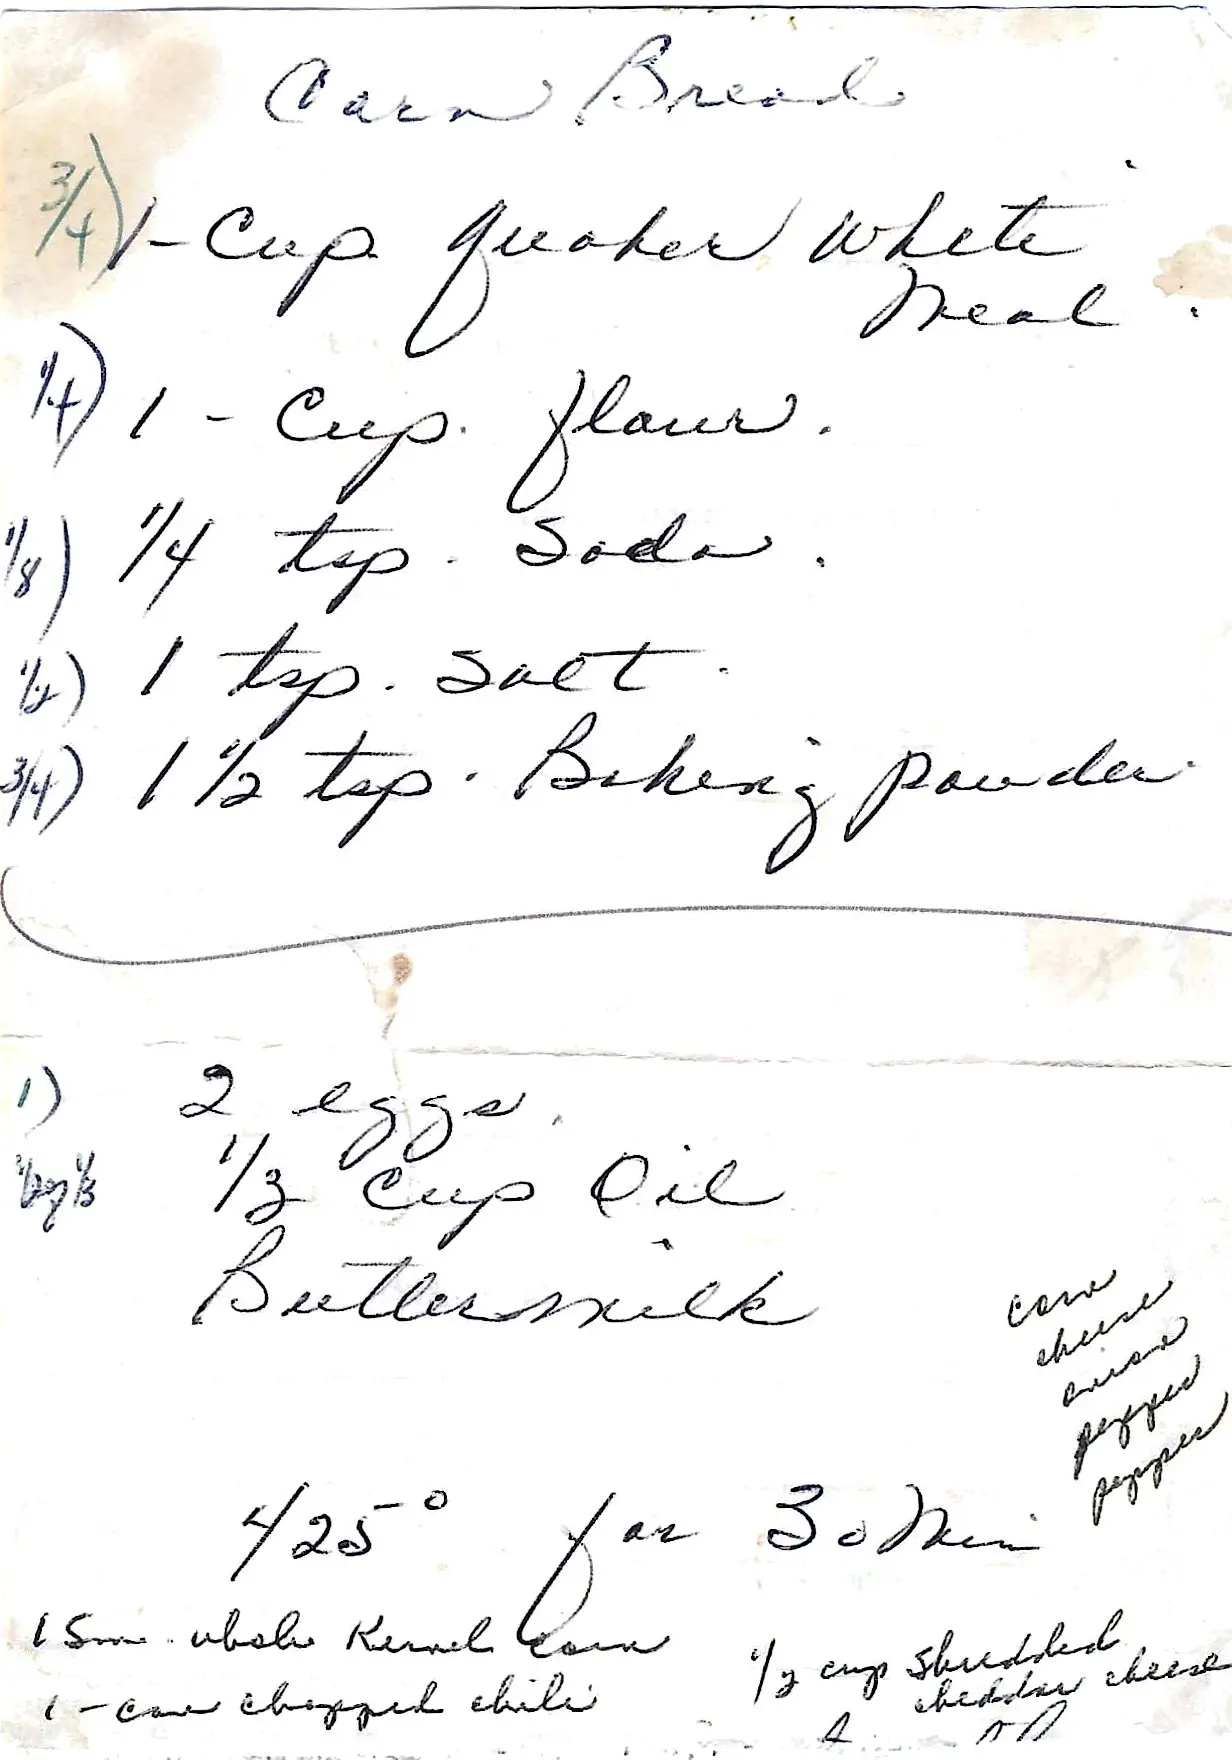 Corn Bread
3/4) 1-Cup Quaker White
Meal.
1/4) 1 - Cup. flour.
1/8) 1/4 tsp. Soda.
1/2) 1 tsp. Salt.
3/4) 1 1/2 tsp. Baking powder
1) 2 eggs.
1/2 of 1/3 1/3 cup Oil
Buttermilk
corn
cheese
onion
pepper
pepper
425° for 30 Min
1 Sm. whole Kernel corn
1 - can chopped chili
1/2 cup shredded
cheddar cheese